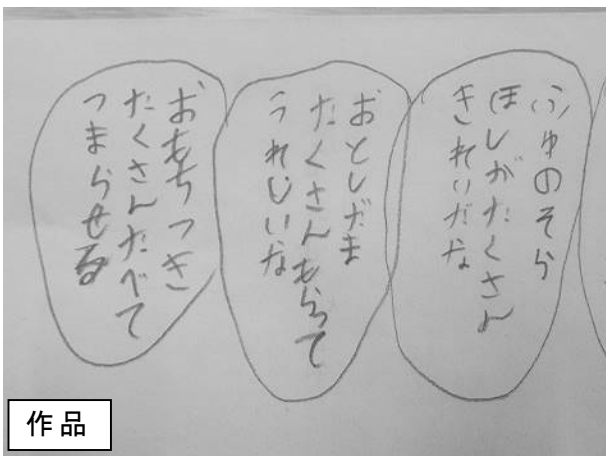 ふゆのそら
ほしがたくさん
きれいだな
おとしだま
たくさんもらって
うれしいな
おもちつき
たくさんたべて
つまらせる
作品